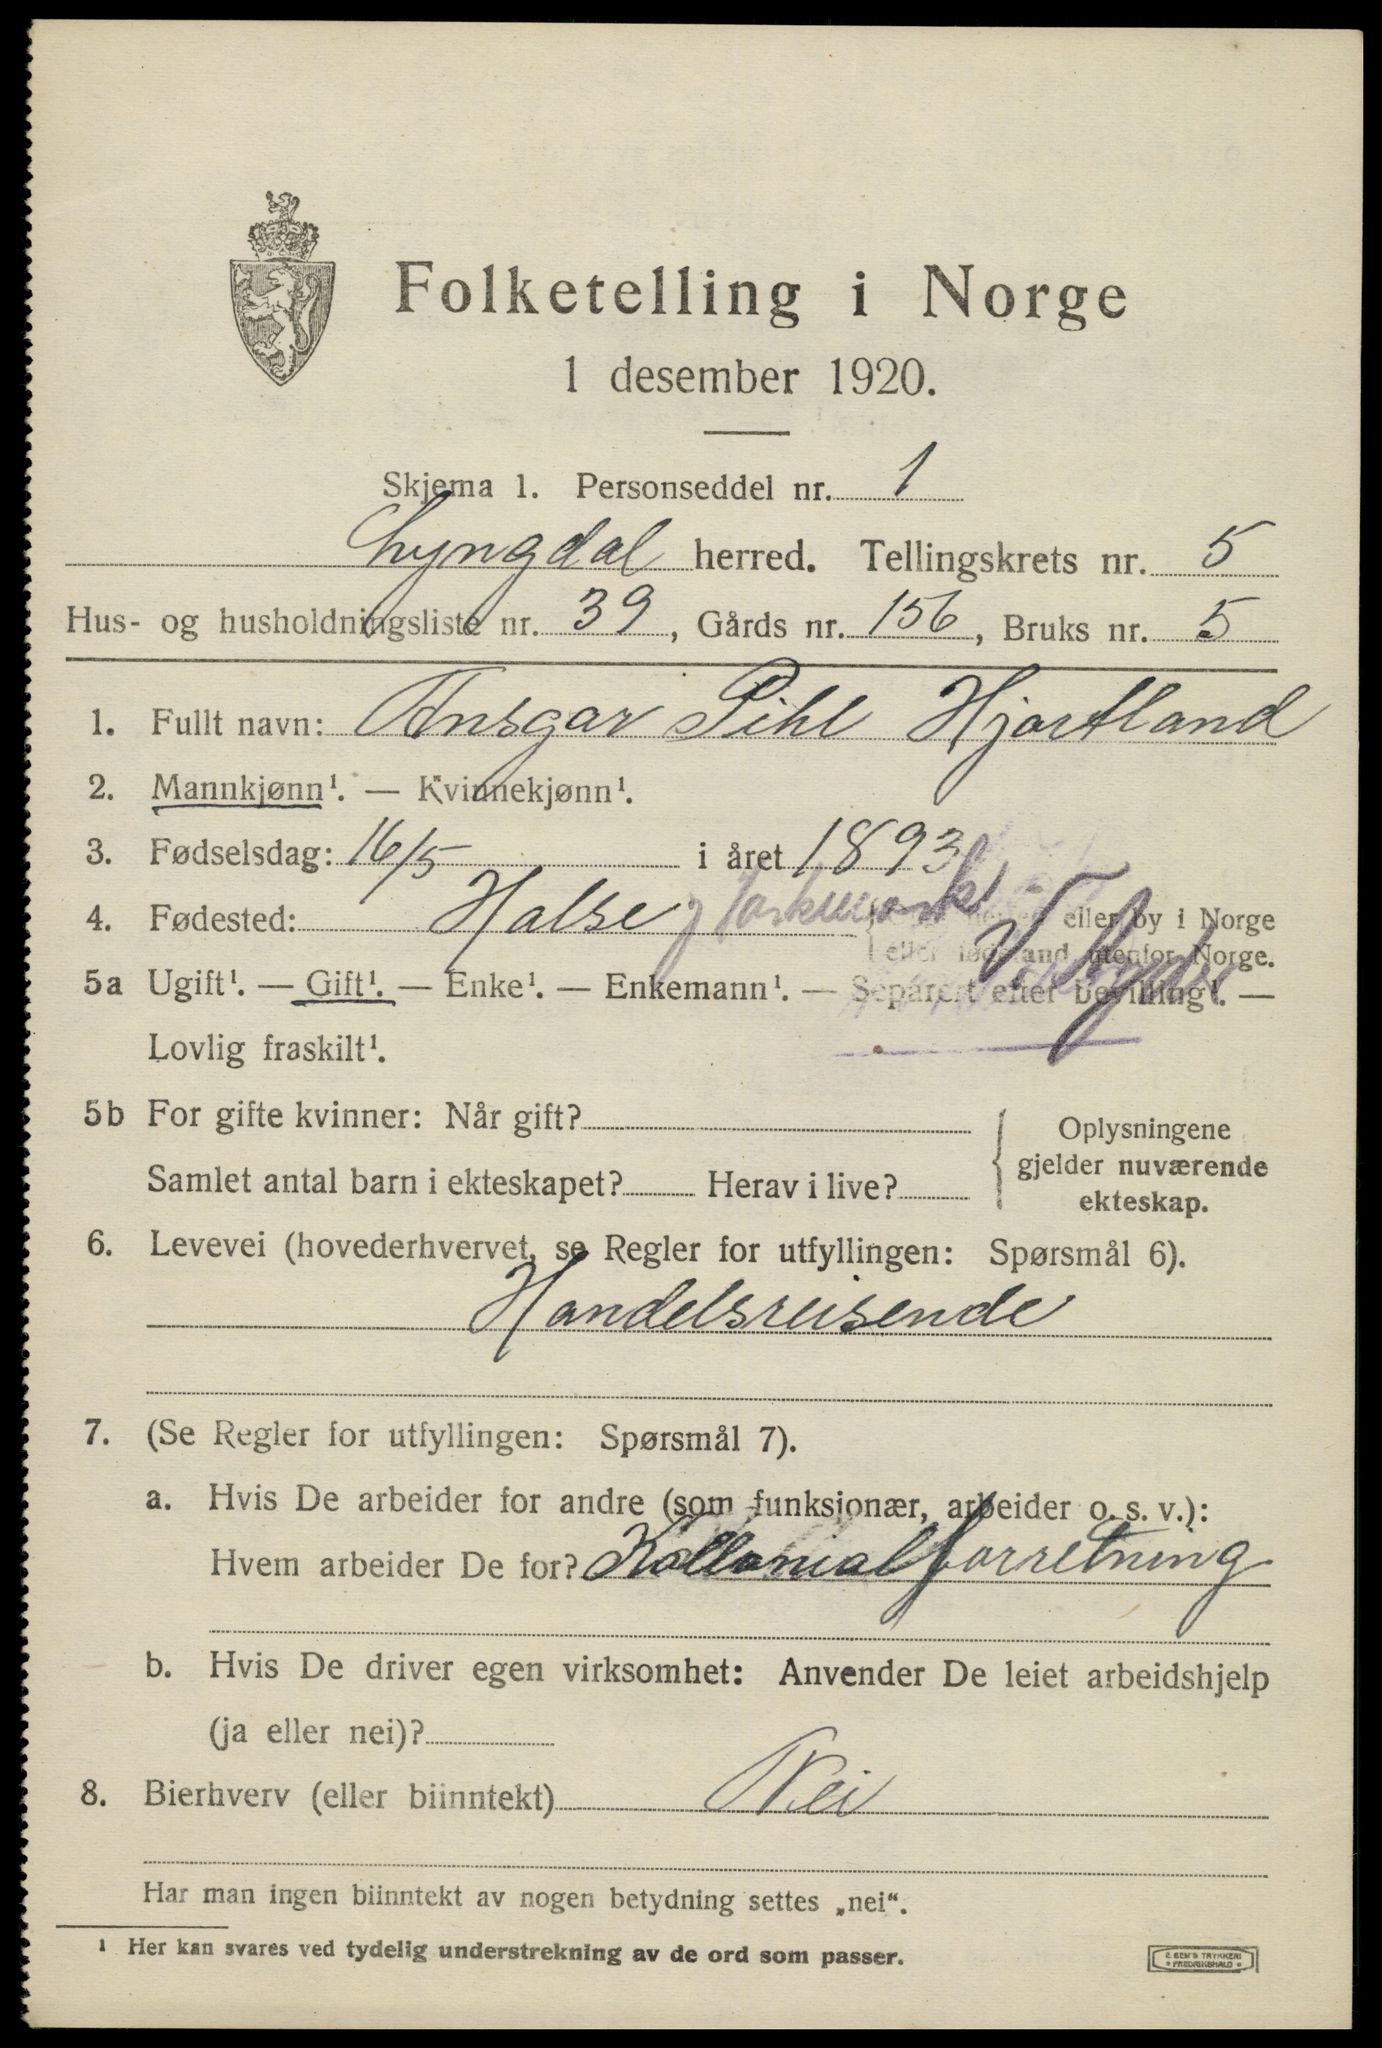 Folketelling i Norge
1 desember 1920.
Skjema 1. Personseddel nr. 1
Lyngdal herred. Tellingskrets nr. 5
Hus- og husholdningsliste nr. 39, Gårds nr. 156, Bruks nr. 5
1. Fullt navn: Ansgar Pihl Hjortland
2. Mannkjønn¹. — Kvinnekjønn¹.
3. Fødselsdag: 16/5 i året 1893
4. Fødested: Halse og Harkmark eller by i Norge
eller fødeland utenfor Norge.
5a Ugift¹. — Gift¹. — Enke¹. — Enkemann¹. — Separert efter bevilling¹. —
Lovlig fraskilt¹.
5b For gifte kvinner: Når gift?
Samlet antal barn i ekteskapet? Herav i live?
Oplysningene
gjelder nuværende
ekteskap.
6. Levevei (hovederhvervet, se Regler for utfyllingen: Spørsmål 6).
Handelsreisende
7. (Se Regler for utfyllingen: Spørsmål 7).
a. Hvis De arbeider for andre (som funksjonær, arbeider o. s. v.):
Hvem arbeider De for? Kollonialforretning
b. Hvis De driver egen virksomhet: Anvender De leiet arbeidshjelp
(ja eller nei)?
8. Bierhverv (eller biinntekt) Nei
Har man ingen biinntekt av nogen betydning settes „nei“.
¹ Her kan svares ved tydelig understrekning av de ord som passer.
E. SEM'S TRYKKERI
FREDRIKSHALD